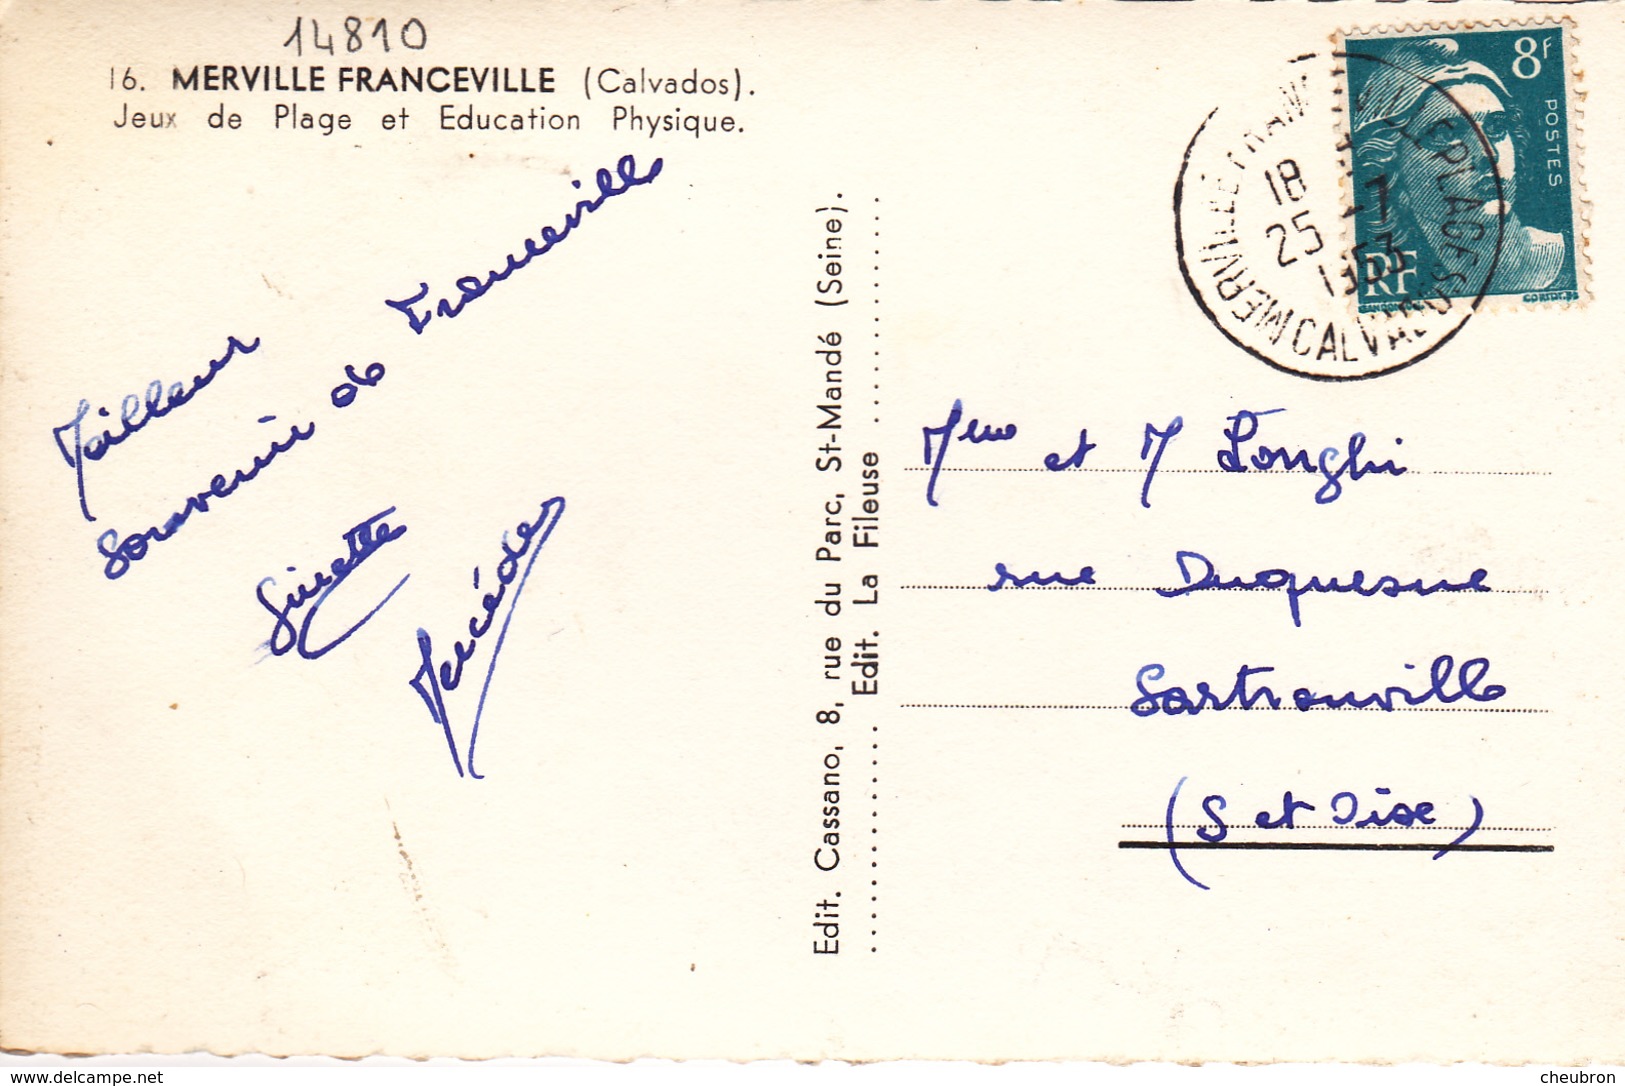 14810
16. MERVILLE FRANCEVILLE (Calvados).
Jeux de Plage et Education Physique.
Meilleur
souvenir de Franceville
Ginette
Mercédes
Edit. Cassano, 8, rue du Parc, St-Mandé (Seine).
Edit. La Fileuse
8F
POSTES
RF
MERVILLE FRANCEVILLE PLAGE
18 H
25 -7
1953
CALVADOS
Mme et M Longhi
rue Duquesne
Sartrouville
(S et Oise)
cheubron @ www.delcampe.net